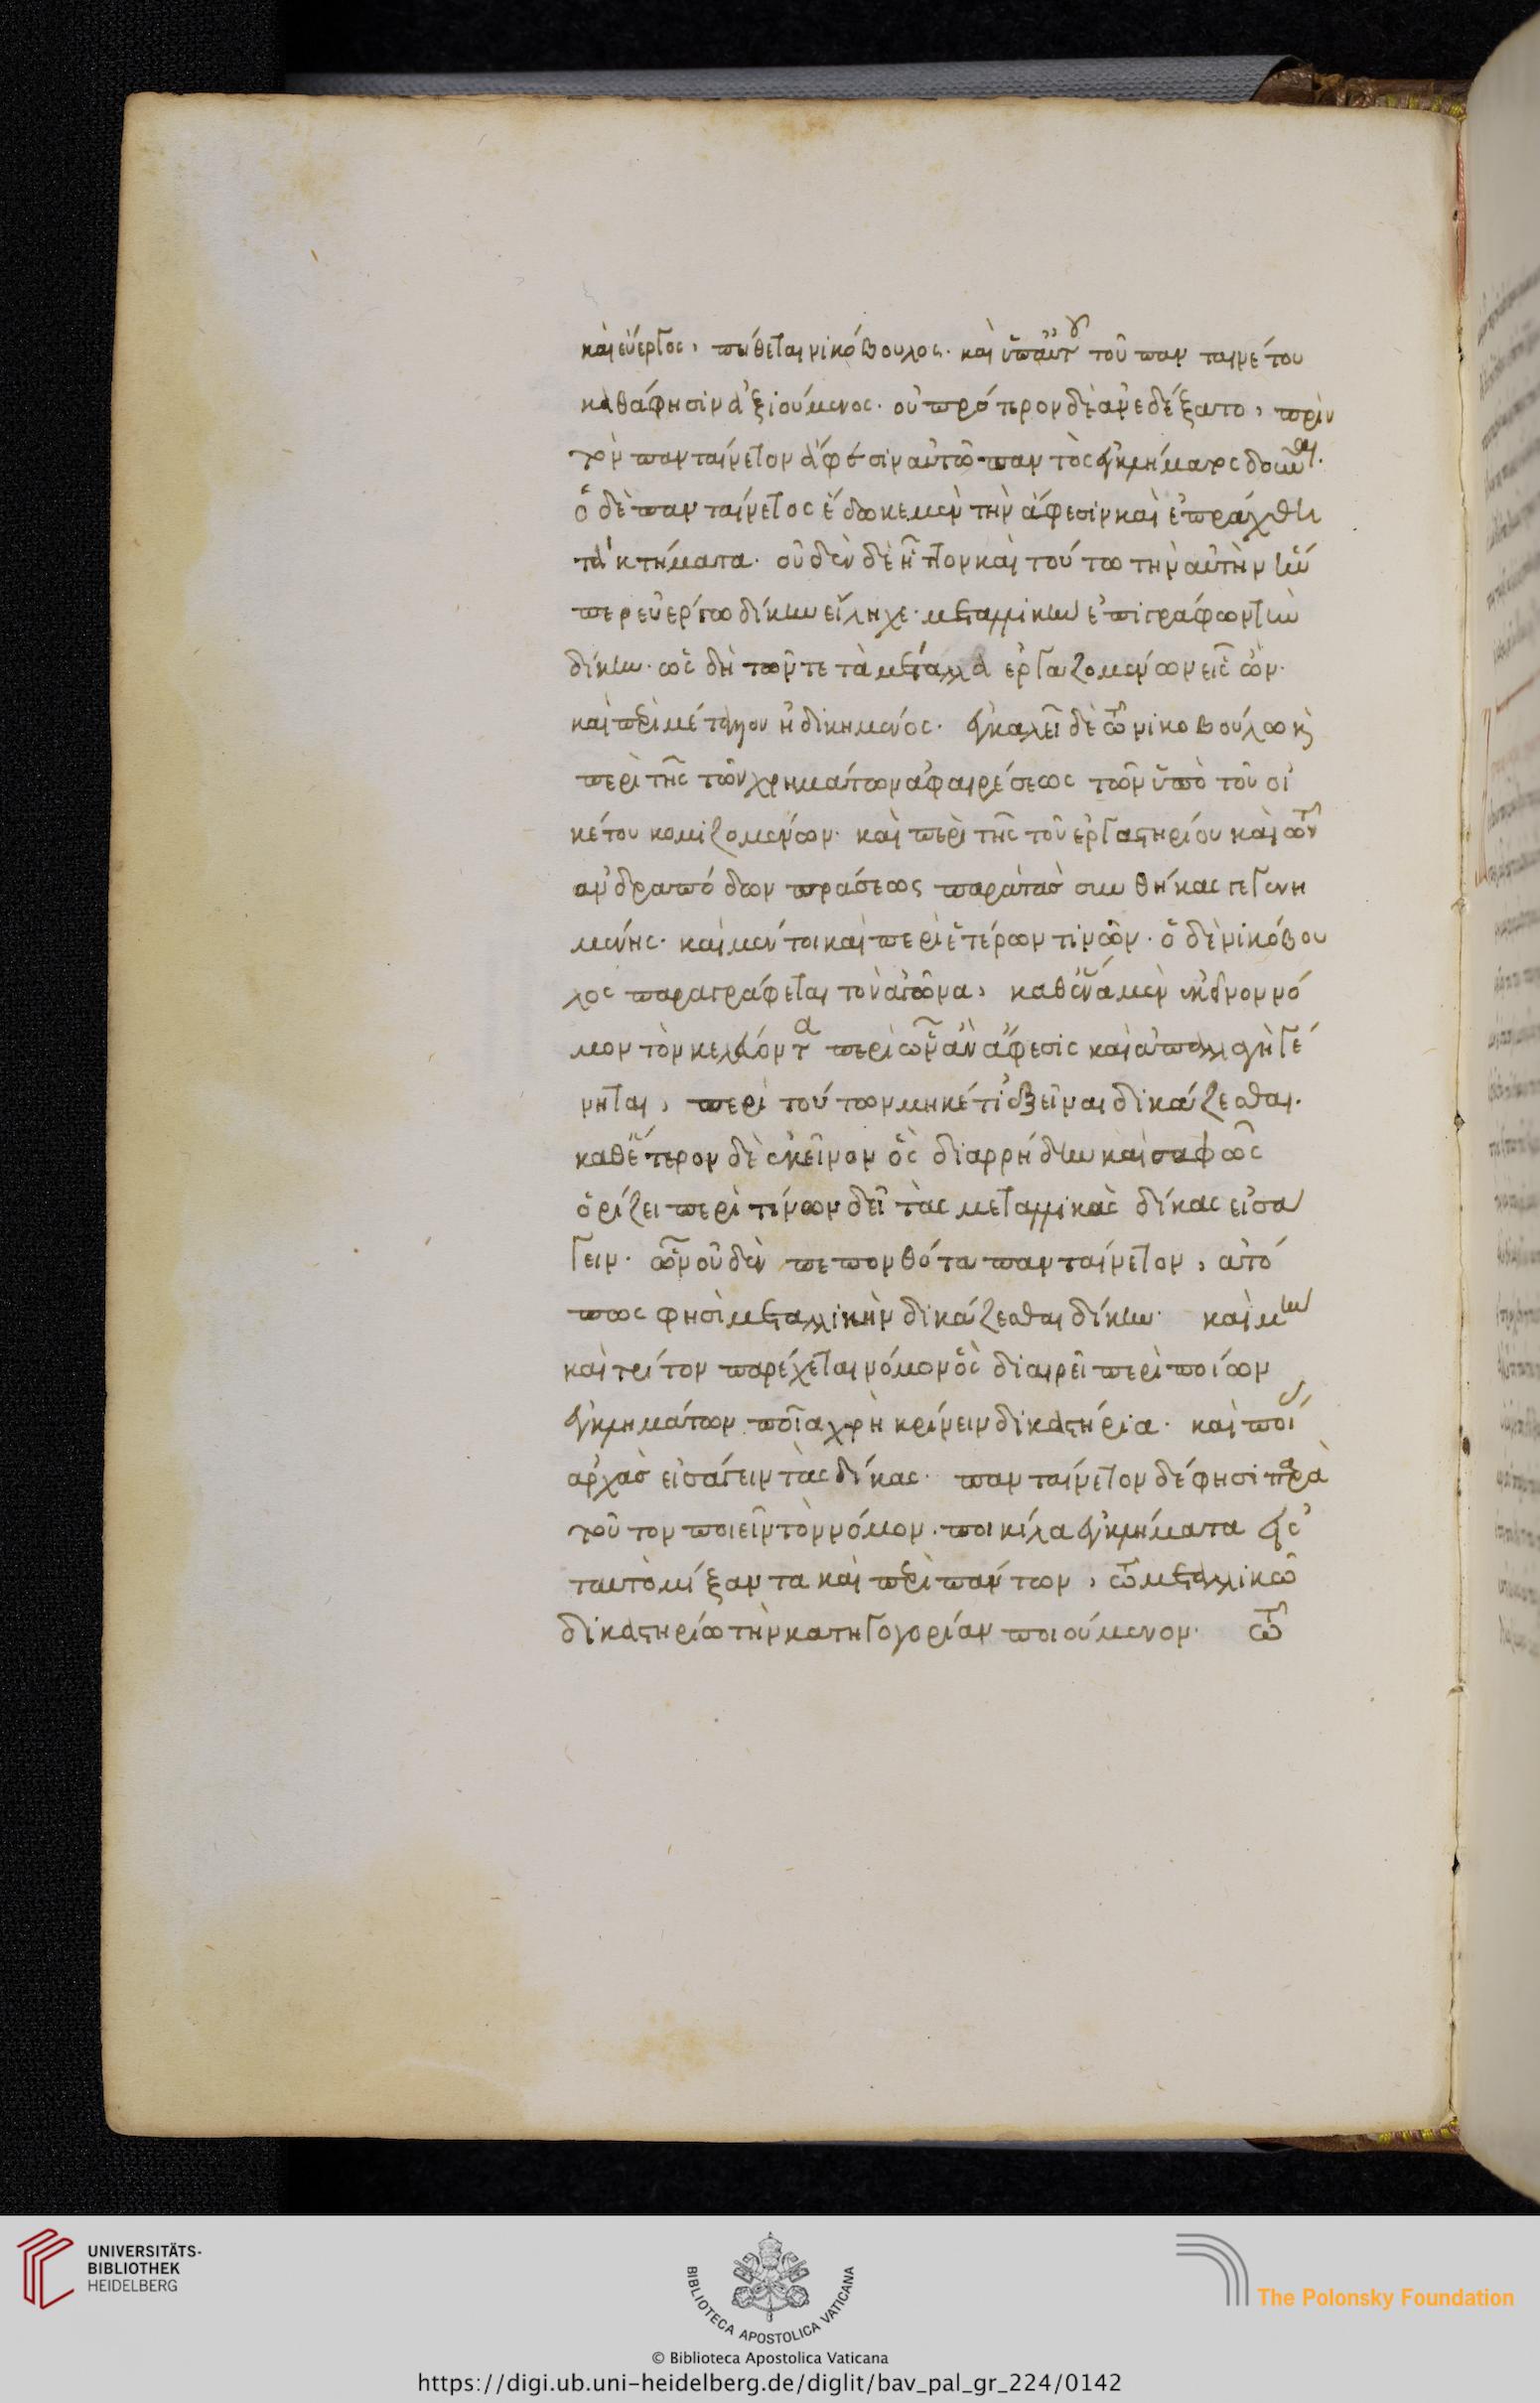 καὶ εὔεργος, πείθεται νικόβουλος. καὶ ὑπ' αὐτοῦ τοῦ πανταινέτου
καθάφησιν ἀξιούμενος. οὐ πρότερον δὲ ἀνεδέξατο, πρὶν
τὸν πανταίνετον ἄφεσιν αὐτῶ παντὸς ἐγκλήματος δοῦναι.
ὁ δὲ πανταίνετος ἔδωκε μὲν τὴν ἄφεσιν καὶ ἐπράχθη
τὰ κτήματα. οὐδὲν δὲ ἧττον καὶ τούτω τὴν αὐτὴν ἣν
περ εὐέργω δίκην εἴληχε. μεταλλικὴν ἐπιγράφων τὴν
δίκην. ὡς δὴ τῶν τε τὰ μέταλλα ἐργαζομένων εἷς ὢν.
καὶ περὶ μέταλλον ἠδικημένος. ἐγκαλεῖ δὲ τῶ νικοβούλω κὶ
περὶ τῆς τῶν χρημάτων ἀφαιρέσεως τῶν ὑπὸ τοῦ οἰ
κέτου κομιζομένων. καὶ περὶ τῆς τοῦ ἐργαστηρίου καὶ τῶν
ἀνδραπόδων πράσεως παρὰ τὰς συνθήκας γεγενη
μένης. καὶ μέντοι καὶ περὶ ἑτέρων τινῶν. ὁ δὲ νικόβου
λος παραγράφεται τὸν ἀγῶνα, καθ' ἕνα μὲν ἐκεῖνον νό
μον τὸν κελεύοντα περὶ ὧν ἂν ἄφεσις καὶ ἀπαλλαγὴ γέ
νηται, περὶ τούτων μηκέτι ἐξεῖναι δικάζεσθαι.
καθ' ἕτερον δὲ ἐκεῖνον ὃς διαρρήδην καὶ σαφῶς
ὁρίζει περὶ τίνων δεῖ τὰς μεταλλικὰς δίκας εἰσά
γειν. ὧν οὐδὲν πεπονθότα πανταίνετον, ἀτό
πως φησὶ μεταλλικὴν δικάζεσθαι δίκην. καὶ μὴν
καὶ τρίτον παρέχεται νόμον ὃς διαιρεῖ περὶ ποίων
ἐγκλημάτων ποῖα χρὴ κρίνειν δικαστήρια. καὶ ποί
ἀρχὰς εἰσάγειν τὰς δίκας. πανταίνετον δέ φησι παρὰ
τοῦτον ποιεῖν τὸν νόμον. ποικίλα ἐγκλήματα ἐς
ταυτὸ μίξαντα καὶ περὶ πάντων, τῶ μεταλλικῶ
δικαστηρίω τὴν κατηγορίαν ποιούμενον. τῶ
UNIVERSITÄTS-
BIBLIOTHEK
HEIDELBERG
BIBLIOTECA APOSTOLICA VATICANA
The Polonsky Foundation
© Biblioteca Apostolica Vaticana
https://digi.ub.uni-heidelberg.de/diglit/bav_pal_gr_224/0142